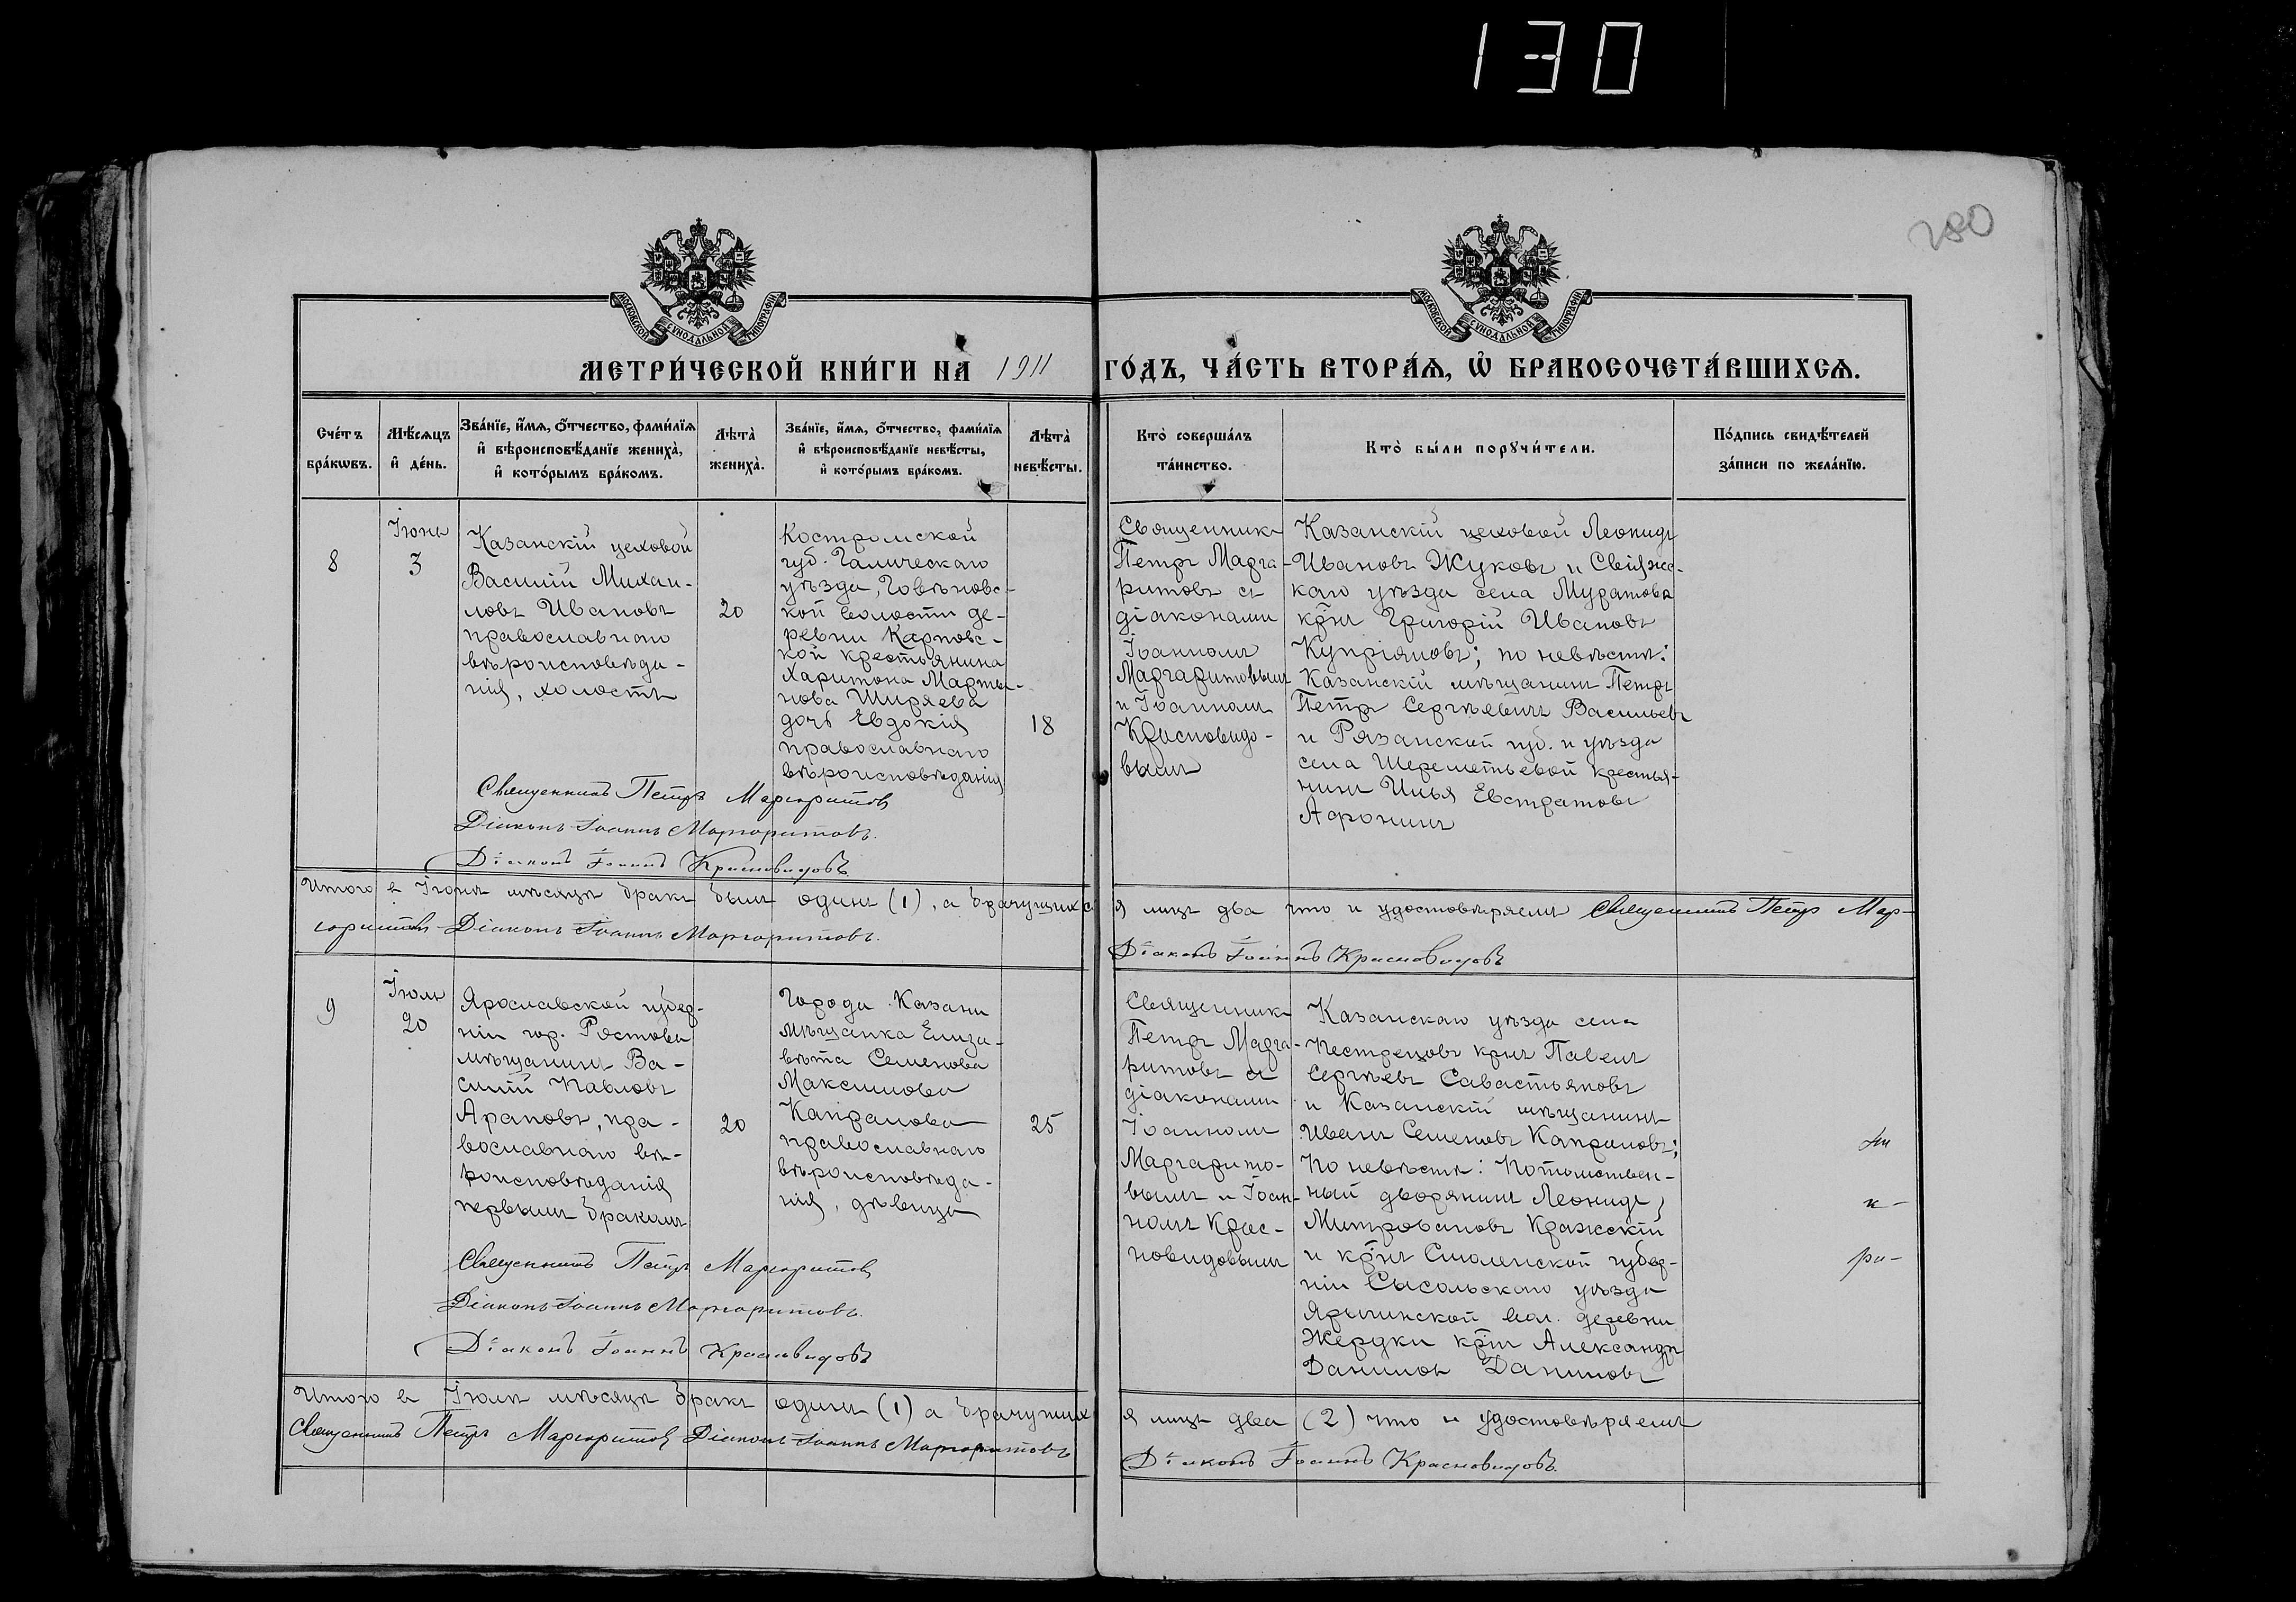 130
280
МОСКОВСКОЙ СѴНОДАЛЬНОЙ ТИПОГРАФІИ
МОСКОВСКОЙ СѴНОДАЛЬНОЙ ТИПОГРАФІИ
МЕТРИ́ЧЕСКОЙ КНИ́ГИ НА 1911 ГО́ДЪ, ЧА́СТЬ ВТОРА́Ѧ, Ѽ БРАКОСОЧЕТА́ВШИХСѦ.
Сче́тъ
бра́кѡвъ.
Мѣ́сяцъ
и҆ де́нь.
Зва́нїе, и҆́мя, ѻ҆́тчество, фами́лїя
и҆ вѣроисповѣ́данїе жениха̀,
и҆ кото́рымъ бра́комъ.
Лѣта̀
жениха̀.
Зва́нїе, и҆́мя, ѻ҆́тчество, фами́лїя
и҆ вѣроисповѣ́данїе невѣ́сты,
и҆ кото́рымъ бра́комъ.
Лѣта̀
невѣ́сты.
Кто̀ соверша́лъ
та́инство.
Кто̀ бы́ли порꙋчи́тели.
По́дпись свидѣ́телей
за́писи по жела́нїю.
8
Іюнь
3
Казанскій цеховой
Василій Михаи-
ловъ Ивановъ
православнаго
вѣроисповѣда-
нія, холостъ
20
Костромской
губ. Галическаго
уѣзда, Говѣновс-
кой волости де-
ревни Карповс-
кой крестьянина
Харитона Марты-
нова Ширяева
дочь Евдокія
православнаго
вѣроисповѣданія
18
Священникъ
Петръ Марга-
ритовъ съ
діаконами
Іоанномъ
Маргаритовымъ
и Іоанномъ
Красновидо-
вымъ
Казанскій цеховой Леонидъ
Ивановъ Жуковъ и Свіяжс-
каго уѣзда села Муратова
крнъ Григорій Ивановъ
Купріяновъ; по невѣстѣ:
Казанскій мѣщанинъ Петръ
Петръ Сергѣевичъ Васильевъ
и Рязанской губ. и уѣзда
села Шереметьевой крестья-
нинъ Илья Евстратовъ
Афонинъ
Священникъ Петръ Маргаритовъ
Діаконъ Іоаннъ Маргаритовъ.
Діаконъ Іоаннъ Красновидовъ
Итого въ Іюнѣ мѣсяцѣ бракъ былъ одинъ (1), а брачущихся лицъ два что и удостовѣряемъ Священникъ Петръ Мар-
гаритовъ Діаконъ Іоаннъ Маргаритовъ. Діаконъ Іоаннъ Красновидовъ
9
Іюль
20
Ярославской губер-
ніи гор. Ростова
мѣщанинъ Ва-
силій Павловъ
Араповъ, пра-
вославнаго вѣ-
роисповѣданія
первымъ бракомъ
20
Города Казани
мѣщанка Елиза-
вѣта Семенова
Максимова
Капралова
православнаго
вѣроисповѣда-
нія, дѣвица
25
Священникъ
Петръ Марга-
ритовъ съ
діаконами
Іоанномъ
Маргарито-
вымъ и Іоан-
номъ Крас-
новидовымъ
Казанскаго уѣзда села
Пестрецовъ крнъ Павелъ
Сергѣевъ Савастьяновъ
и Казанскій мѣщанинъ
Иванъ Семеновъ Капраловъ;
По невѣстѣ: Потомствен-
ный дворянинъ Леонидъ
Митрофановъ Кражскій
и крнъ Смоленской губер-
ніи Сысольскаго уѣзда
Ярыгинской вол. деревни
Жердки крнъ Александръ
Даниловъ Даниловъ
Священникъ Петръ Маргаритовъ
Діаконъ Іоаннъ Маргаритовъ.
Діаконъ Іоаннъ Красновидовъ
Итого въ Іюлѣ мѣсяцѣ бракъ одинъ (1) а брачущихся лицъ два (2) что и удостовѣряемъ
Священникъ Петръ Маргаритовъ Діаконъ Іоаннъ Маргаритовъ Діаконъ Іоаннъ Красновидовъ.